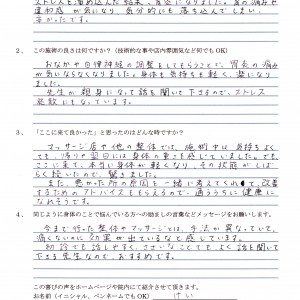 ストレスも溜め込んだ結果、胃炎になりました。胃の痛みや
違和感が気になり、気分的にも落ち込んでしまい、
辛かったです。
2. この施術の良さは何ですか？（技術的な事や店内雰囲気など何でもOK）
おなかや自律神経の調整をしてもらうことで、胃炎の痛み
が気にならなくなりました。身体も気持ちも軽く、楽になり
ました。
先生が親身になって話を聞いて下さるので、ストレス
発散にもなっています。
3. 「ここに来て良かった」と思ったのはどんな時ですか？
マッサージ店や他の整体では、施術中は気持ちよく
ても、帰りや翌日には身体の重さを感じていました。でも、
ここに来て、本当に身体が軽くなり、その状態がしば
らく続いたので、驚きました。
また、悪かった所の原因を一緒に考えてくれて、改善
するためのアドバイスももらえるので、通ううちに健康に
なれそうです。
4. 同じように身体のことで悩んでいる方への励ましの言葉などメッセージをお願いします。
今まで行った整体やマッサージでは、手法が異なっていて、
痛くないのに効果が出ているなと感じています。
初診でも話しやすく、ささいなことでも、よく話を聞いて
下さる先生なので、おすすめです。
この喜びの声をホームページや院内にて紹介させて頂きます。
お名前（イニシャル、ペンネームでもOK）（ けい ）